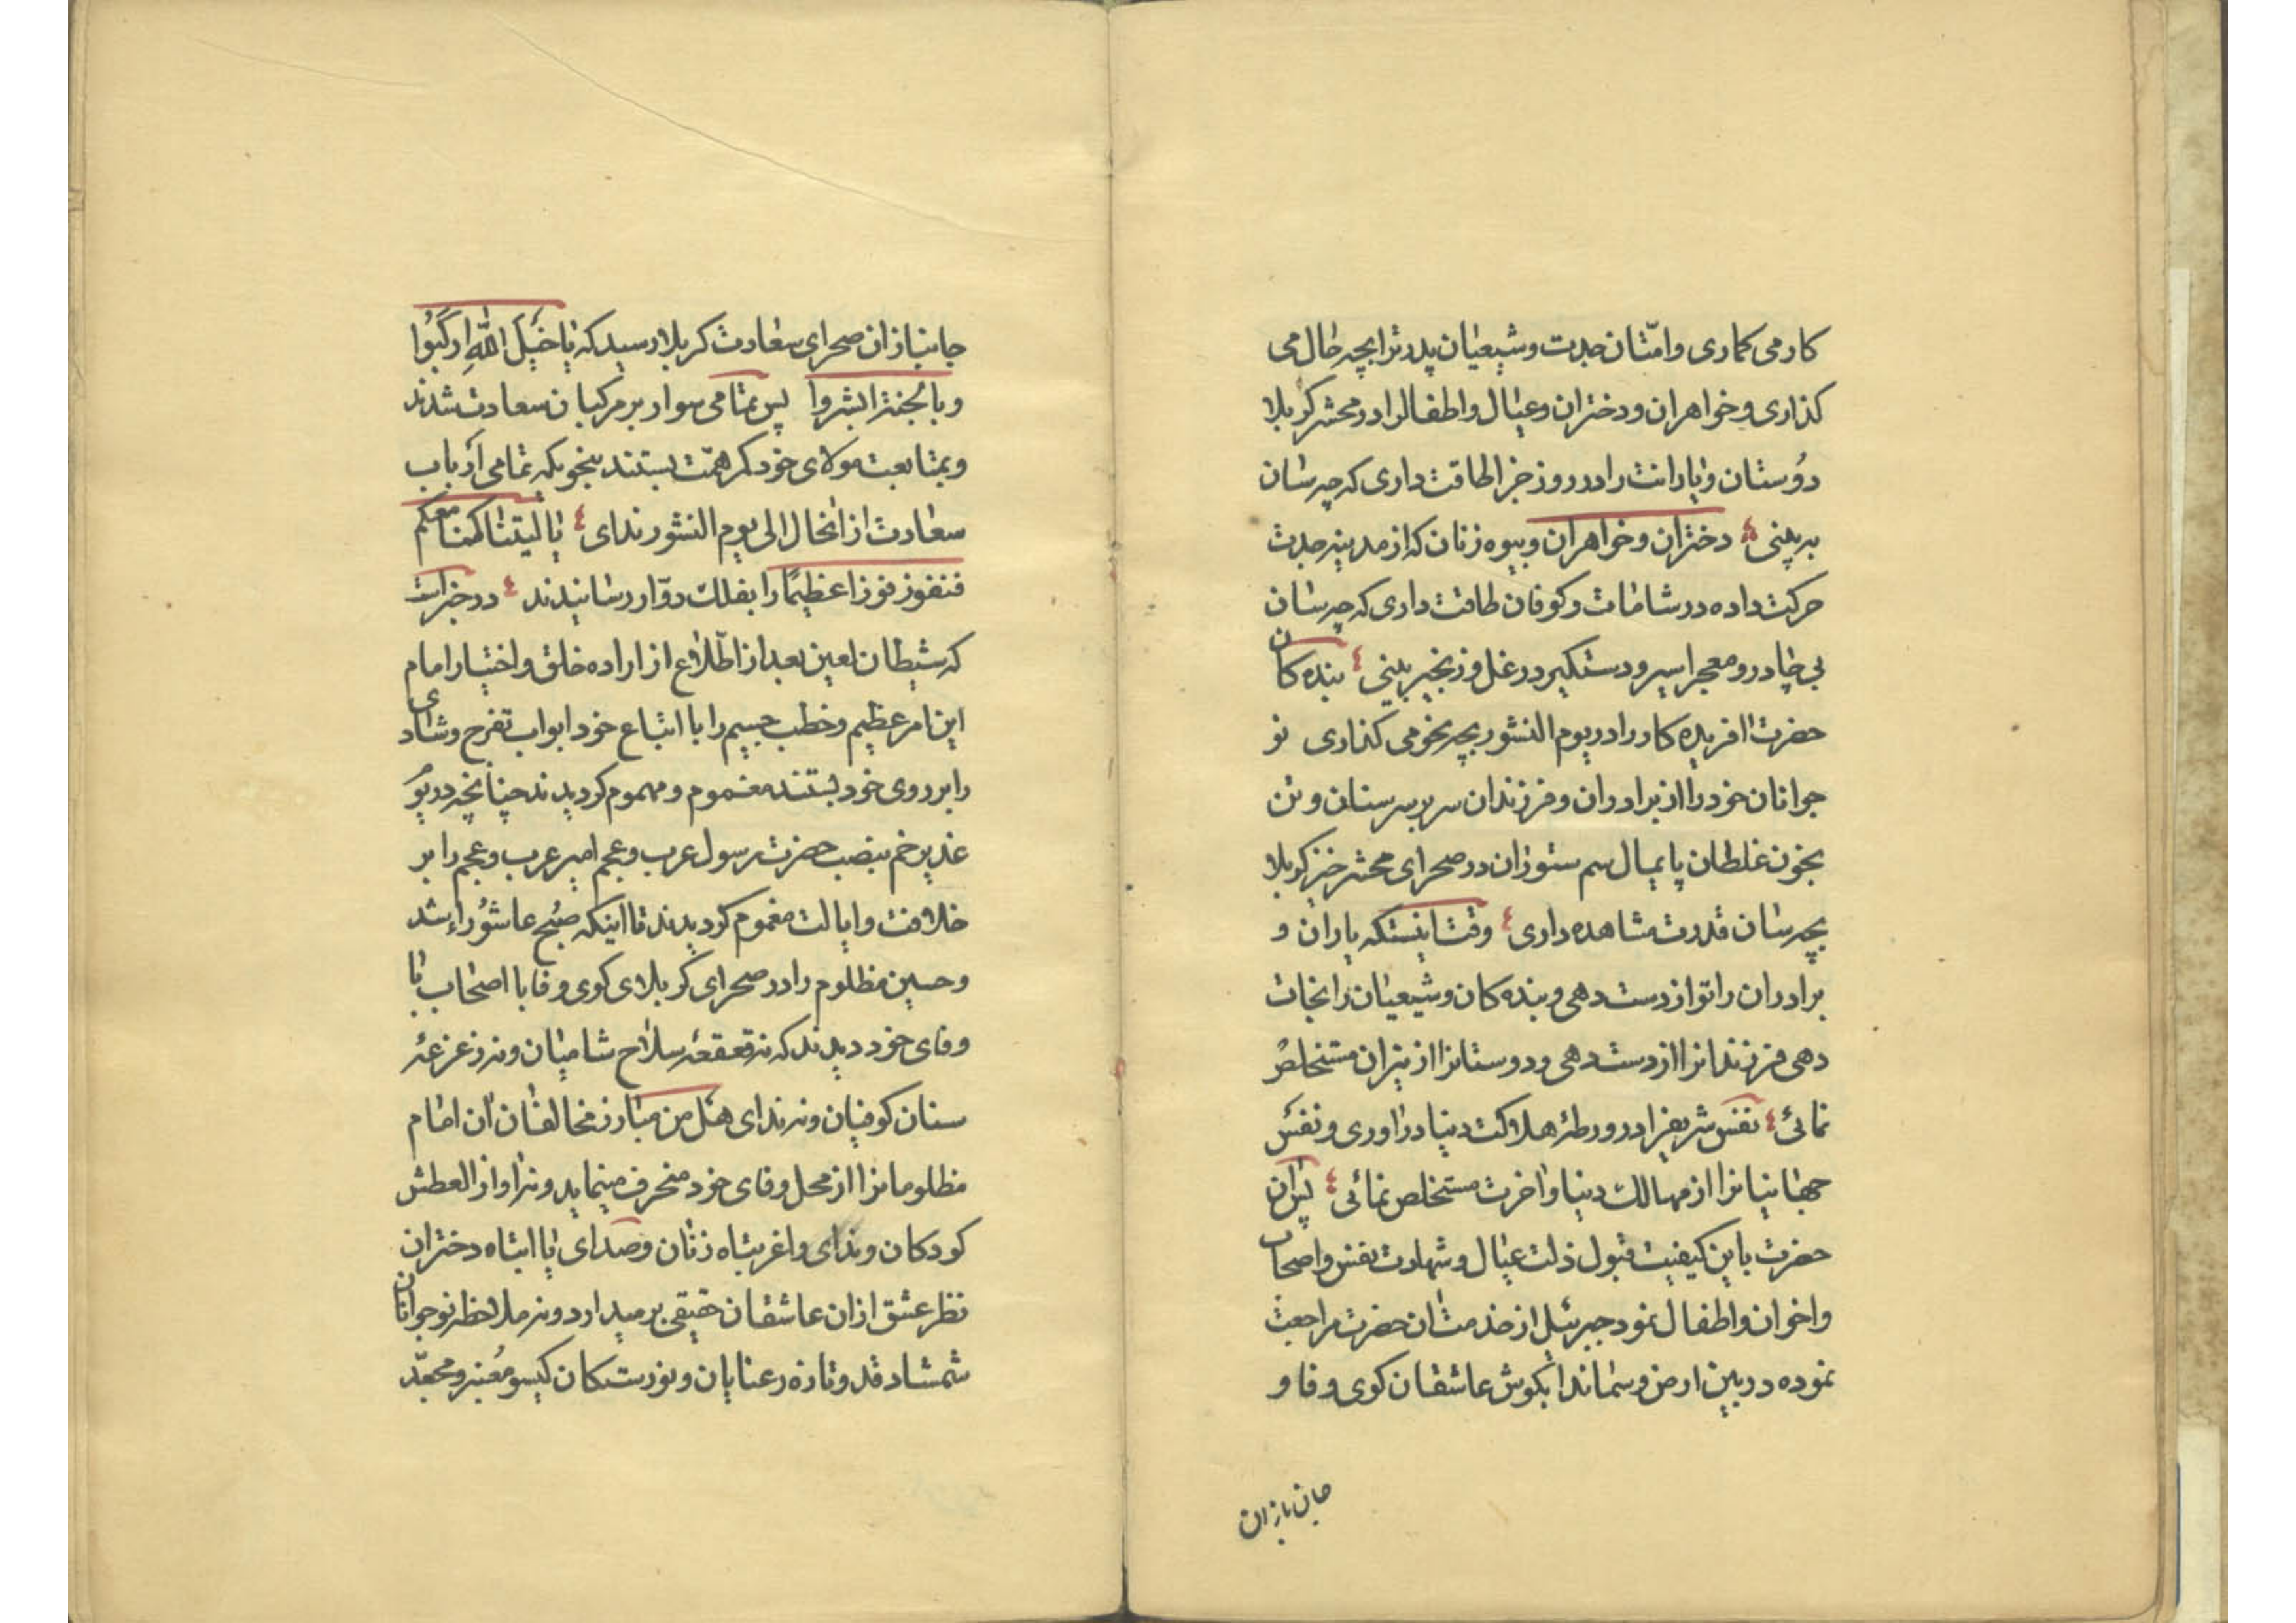 کار می کماری و امّتان جدت و شیعیان پدرترا بچه حال می
کذاری و خواهران و دختران و عیال و اطفالرا در محشر کربلا
دوستان و یارانت را در روز جزا طاقت داری که چه سان
به بینی دختران و خواهران و بیوه زنان که از مدینه جدت
حرکت داده در شامات و کوفان طاقت داری که چه سان
بی چادر و معجر اسیر و دستکیر در غل و زنجیر بینی بنده کان
حضرت افریده کار را در یوم النشور بچه نحو می کذاری تو
جوانان خود را از برادران و فرزندان سر بر سر سنان و تن
بخون غلطان پایمال سم ستوران در صحرای محشر خیز کربلا
بچه سان قدرت مشاهده داری وقت اینستکه یاران و
برادران را تو از دست دهی و بنده کان و شیعیان را نجات
دهی فرزندانرا از دست دهی و دوستانرا از نیران مستخلص
نمائی نفس شریفرا در ورطهٔ هلاکت دنیا در اوری و نفس
جهانیانرا از مهالک دنیا و اخرت مستخلص نمائی پس ان
حضرت باین کیفیت قبول ذلت عیال و شهادت نفس و اصحاب
و اخوان و اطفال نمود جبرئیل از خدمت ان حضرت مراجعت
نموده در بین ارض و سما ندا بکوش عاشقان کوی وفا و
جان بازان
جانبازان صحرای سعادت کربلا رسید که یا خَیلَ اللّهِ ارکَبُوا
و بالجنة ابشروا پس تمامی سوار بر مرکبان سعادت شدند
و بمتابعت مولای خود کمر همّت بستند بنحویکه تمامی ارباب
سعادت از انحال الی یوم النشور ندای یا لیتنا کنا معکم
فنفوز فوزا عظیمًا را بفلک دوّار رسانیدند در خبر است
که شیطان لعین بعد از اطّلاع از اراده خلق و اختیار امام
این امر عظیم و خطب جسیم را با اتباع خود ابواب تفرح و شادی
را بر روی خود بستند مغموم و مهموم کردیدند چنانچه در یوم
غدیر خم بنصب حضرت رسول عرب و عجم امیر عرب و عجم را بر
خلافت و ایالت مغموم کردیدند تا اینکه صُبح عاشوراء شد
و حسین مظلوم را در صحرای کربلای کوی وفا با اصحاب با
وفای خود دیدند که نه قعقعهٔ سلاح شامیان و نه زعزعهٔ
سنان کوفیان و نه ندای هل من مبارز مخالفان ان امام
مظلومانرا از محل وفای خود منحرف مینماید و نه اواز العطش
کودکان و ندای واغربتاه زنان و صدای یا ابتاه دختران
نظر عشق از ان عاشقان حقیقی بر میدارد و نه ملاحظه نوجوانان
شمشاد قد و تازه رعنایان و نورستکان کیسو مُعنبر و مجعّد